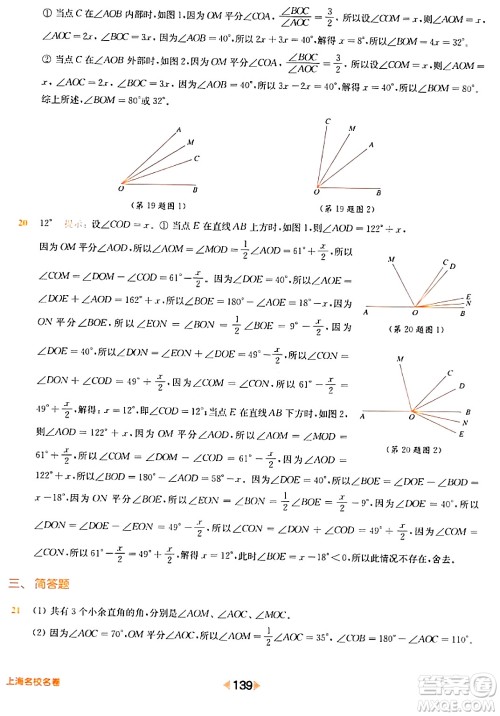 ① 当点 C 在 ∠AOB 内部时，如图 1，因为 OM 平分∠COA，∠BOC/∠AOC=3/2，所以设∠COM=x，则∠AOM=x，
∠AOC=2x，∠BOC=3x，因为∠AOB=40°，所以 2x+3x=40°，解得 x=8°，所以∠BOM=4x=32°.
② 当点 C 在 ∠AOB 外部时，如图 2，因为 OM 平分∠COA，∠BOC/∠AOC=3/2，所以设∠COM=x，则∠AOM=x，
∠AOC=2x，∠BOC=3x，因为∠AOB=40°，所以 3x-2x=40°，解得 x=40°，所以∠BOM=2x=80°.
综上所述，∠BOM=80°或 32°.
A
M
C
O
B
(第 19 题图 1)
C
M
A
O
B
(第 19 题图 2)
20 12° 提示：设∠COD=x. ① 当点 E 在直线 AB 上方时，如图 1，则∠AOD=122°+x，
因为 OM 平分∠AOD，所以∠AOM=1/2∠AOD=61°+x/2，所以∠DOM=61°+x/2，
因为∠COD=x，所以∠COM=∠DOM-∠COD=61°-x/2，因为∠DOE=40°，
∠AOD=122°+x，所以∠BOE=180°-∠AOD-∠DOE=180°-122°-x-40°=18°-x，
因为 ON 平分∠BOE，所以∠EON=1/2∠BOE=9°-x/2，因为∠DOE=40°，所以
∠DON=∠DOE+∠EON=40°+9°-x/2=49°-x/2，因为∠COM=∠DON+x，所以 61°-x/2=
49°-x/2+x，解得：x=12°，即∠COD=12°. ② 当点 E 在直线 AB 下方时，如图 2，
则∠AOD=122°+x，因为 OM 平分∠AOD，所以∠AOM=∠DOM=1/2∠AOD=
61°+x/2，所以∠COM=∠DOM-∠COD=61°-x/2，因为∠DOE=40°，∠AOD=
122°+x，所以∠BOD=180°-∠AOD=180°-122°-x=58°-x，所以∠BOE=∠DOE-∠BOD=
40°-(58°-x)=x-18°，因为 ON 平分∠BOE，所以∠EON=1/2∠BOE=x/2-9°，所以∠DON=∠DOE-∠EON=49°-x/2，因为∠COM=
∠DON+x，所以 61°-x/2=49°-x/2+x，解得：x=12°，此时∠BOE=x-18°<0，所以此情况不存在.
M
C
D
E
N
A
O
B
(第 20 题图 1)
M
C
D
A
O
B
N
E
(第 20 题图 2)
三、简答题
21 (1) 共有 3 个小余直角的角，分别是∠AOM、∠AOC、∠MOC.
(2) 因为∠AOC=70°，OM 平分∠AOC，所以∠AOM=1/2∠AOC=35°，∠BOC=180°-∠AOC=110°.
上海名校名卷
139